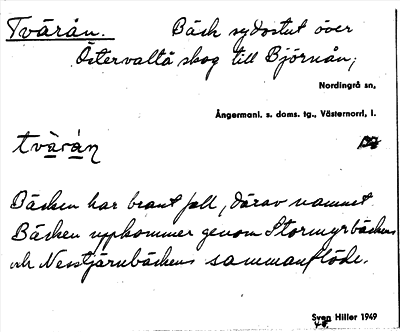 Tvärån. Bäck sydostut över
Östervalta skog till Björnån,
Nordingrå sn,
Ångermanl. s. doms. tg., Västernorrl, l.
tvä̀rán
Bäcken har brant fall, därav namnet.
Bäcken uppkommer genom Stormyrbäckens
och Nesstjärnbäckens sammanflöde.
Sven Hiller 1949